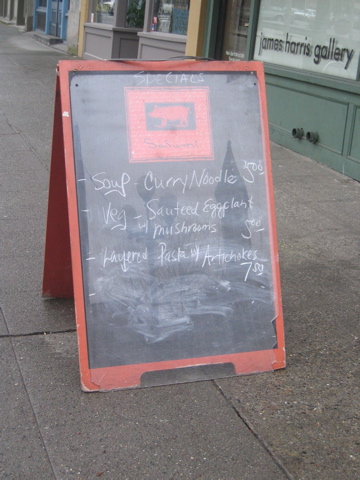 james harris gallery
SPECIALS
- Soup - Curry Noodle 5.00
- Veg - Sauteed Eggplant
w/ mushrooms 5.00
- Layered Pasta w/ Artichokes
7.50
-